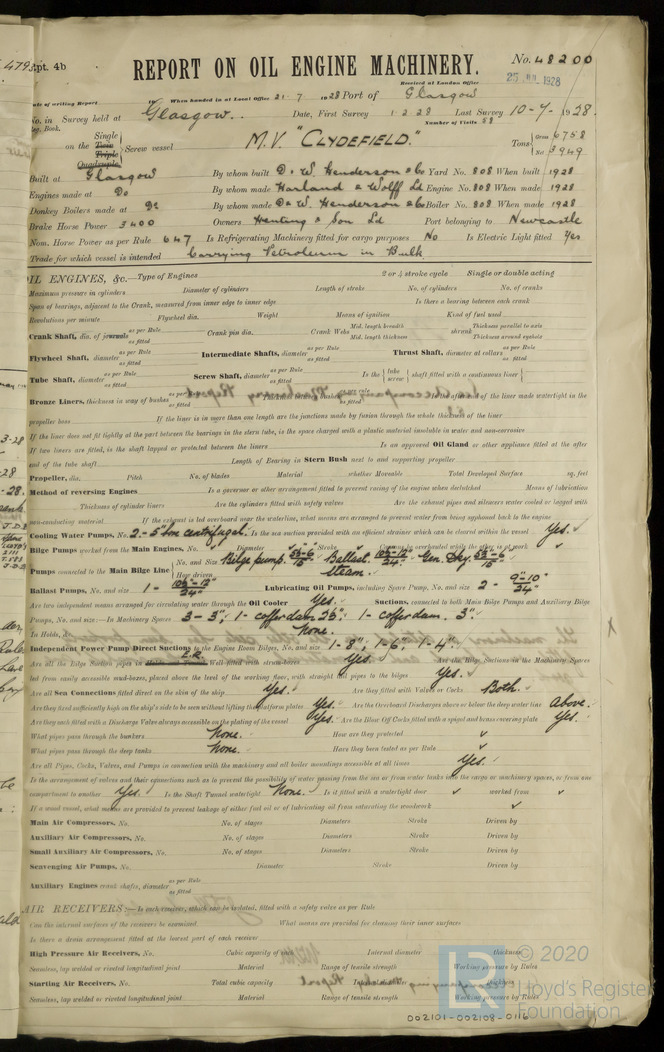 Rpt. 4b
REPORT ON OIL ENGINE MACHINERY.
No. 48200
Received at London Office
25 JUL 1928
Date of writing Report 19 When handed in at Local Office 21. 7. 1928 Port of Glasgow
No. in Survey held at Glasgow. Date, First Survey 1. 2. 28 Last Survey 10-7-1928.
Reg. Book. Number of Visits 88
Single
on the Twin Screw vessel M.V. "CLYDEFIELD." Tons Gross 6758
Triple
Quadruple Net 3949
Built at Glasgow By whom built D. & W. Henderson & Co Yard No. 808 When built 1928
Engines made at Do By whom made Harland & Wolff Ld Engine No. 808 When made 1928
Donkey Boilers made at Do By whom made D. & W. Henderson & Co Boiler No. 808 When made 1928
Brake Horse Power 3400 Owners Hunting & Son Ld Port belonging to Newcastle
Nom. Horse Power as per Rule 647 Is Refrigerating Machinery fitted for cargo purposes No Is Electric Light fitted Yes
Trade for which vessel is intended Carrying Petroleum in Bulk
OIL ENGINES, &c.—Type of Engines 2 or 4 stroke cycle Single or double acting
Maximum pressure in cylinders Diameter of cylinders Length of stroke No. of cylinders No. of cranks
Span of bearings, adjacent to the Crank, measured from inner edge to inner edge Is there a bearing between each crank
Revolutions per minute Flywheel dia. Weight Means of ignition Kind of fuel used
Crank Shaft, dia. of journals as per Rule as fitted Crank pin dia. Crank Webs Mid. length breadth Mid. length thickness shrunk Thickness parallel to axis Thickness around eyehole
Flywheel Shaft, diameter as per Rule as fitted Intermediate Shafts, diameter as per Rule as fitted Thrust Shaft, diameter at collars as per Rule as fitted
Tube Shaft, diameter as per Rule as fitted Screw Shaft, diameter as per Rule as fitted Is the tube screw shaft fitted with a continuous liner
Bronze Liners, thickness in way of bushes as per Rule as fitted Thickness between bushes as per rule as fitted Is the after end of the liner made watertight in the
propeller boss If the liner is in more than one length are the junctions made by fusion through the whole thickness of the liner
If the liner does not fit tightly at the part between the bearings in the stern tube, is the space charged with a plastic material insoluble in water and non-corrosive
If two liners are fitted, is the shaft lapped or protected between the liners Is an approved Oil Gland or other appliance fitted at the after
end of the tube shaft Length of Bearing in Stern Bush next to and supporting propeller
Propeller, dia. Pitch No. of blades Material whether Moveable Total Developed Surface sq. feet
Method of reversing Engines Is a governor or other arrangement fitted to prevent racing of the engine when declutched Means of lubrication
Thickness of cylinder liners Are the cylinders fitted with safety valves Are the exhaust pipes and silencers water cooled or lagged with
non-conducting material If the exhaust is led overboard near the waterline, what means are arranged to prevent water from being syphoned back to the engine
Cooling Water Pumps, No. 2 - 5" bore centrifugal. Is the sea suction provided with an efficient strainer which can be cleared within the vessel Yes.
Bilge Pumps worked from the Main Engines, No. Diameter Stroke Can one be overhauled while the other is at work
Pumps connected to the Main Bilge Line No. and Size Bilge pump. Ballast. Gen. Sky.
How driven Steam.
Ballast Pumps, No. and size 1 - Lubricating Oil Pumps, including Spare Pump, No. and size 2 - 9"-10" 24"
Are two independent means arranged for circulating water through the Oil Cooler Yes. Suctions, connected to both Main Bilge Pumps and Auxiliary Bilge
Pumps, No. and size:—In Machinery Spaces 3 - 3"; 1 - cofferdam 1 - cofferdam. 3".
In Holds, &c. None.
Independent Power Pump Direct Suctions to the Engine Room Bilges, No. and size 1 - 8"; 1 - 6"; 1 - 4".
Are all the Bilge Suction pipes in E.R. Well fitted with strum-boxes Yes. Are the Bilge Suctions in the Machinery Spaces
led from easily accessible mud-boxes, placed above the level of the working floor, with straight tail pipes to the bilges Yes.
Are all Sea Connections fitted direct on the skin of the ship Yes. Are they fitted with Valves or Cocks Both.
Are they fixed sufficiently high on the ship's side to be seen without lifting the platform plates Yes. Are the Overboard Discharges above or below the deep water line Above.
Are they each fitted with a Discharge Valve always accessible on the plating of the vessel Yes. Are the Blow Off Cocks fitted with a spigot and brass covering plate Yes.
What pipes pass through the bunkers None. How are they protected
What pipes pass through the deep tanks None. Have they been tested as per Rule
Are all Pipes, Cocks, Valves, and Pumps in connection with the machinery and all boiler mountings accessible at all times Yes.
Is the arrangement of valves and their connections such as to prevent the possibility of water passing from the sea or from water tanks into the cargo or machinery spaces, or from one
compartment to another Yes. Is the Shaft Tunnel watertight None. Is it fitted with a watertight door worked from
If a wood vessel, what means are provided to prevent leakage of either fuel oil or of lubricating oil from saturating the woodwork
Main Air Compressors, No. No. of stages Diameters Stroke Driven by
Auxiliary Air Compressors, No. No. of stages Diameters Stroke Driven by
Small Auxiliary Air Compressors, No. No. of stages Diameters Stroke Driven by
Scavenging Air Pumps, No. Diameter Stroke Driven by
Auxiliary Engines crank shafts, diameter as per Rule as fitted
AIR RECEIVERS:—Is each receiver, which can be isolated, fitted with a safety valve as per Rule
Can the internal surfaces of the receivers be examined What means are provided for cleaning their inner surfaces
Is there a drain arrangement fitted at the lowest part of each receiver
High Pressure Air Receivers, No. Cubic capacity of each Internal diameter thickness
Seamless, lap welded or riveted longitudinal joint Material Range of tensile strength Working pressure by Rules
Starting Air Receivers, No. Total cubic capacity Internal diameter thickness
Seamless, lap welded or riveted longitudinal joint Material Range of tensile strength Working pressure by Rules
© 2020
Lloyd's Register
Foundation
002101-002108-0116